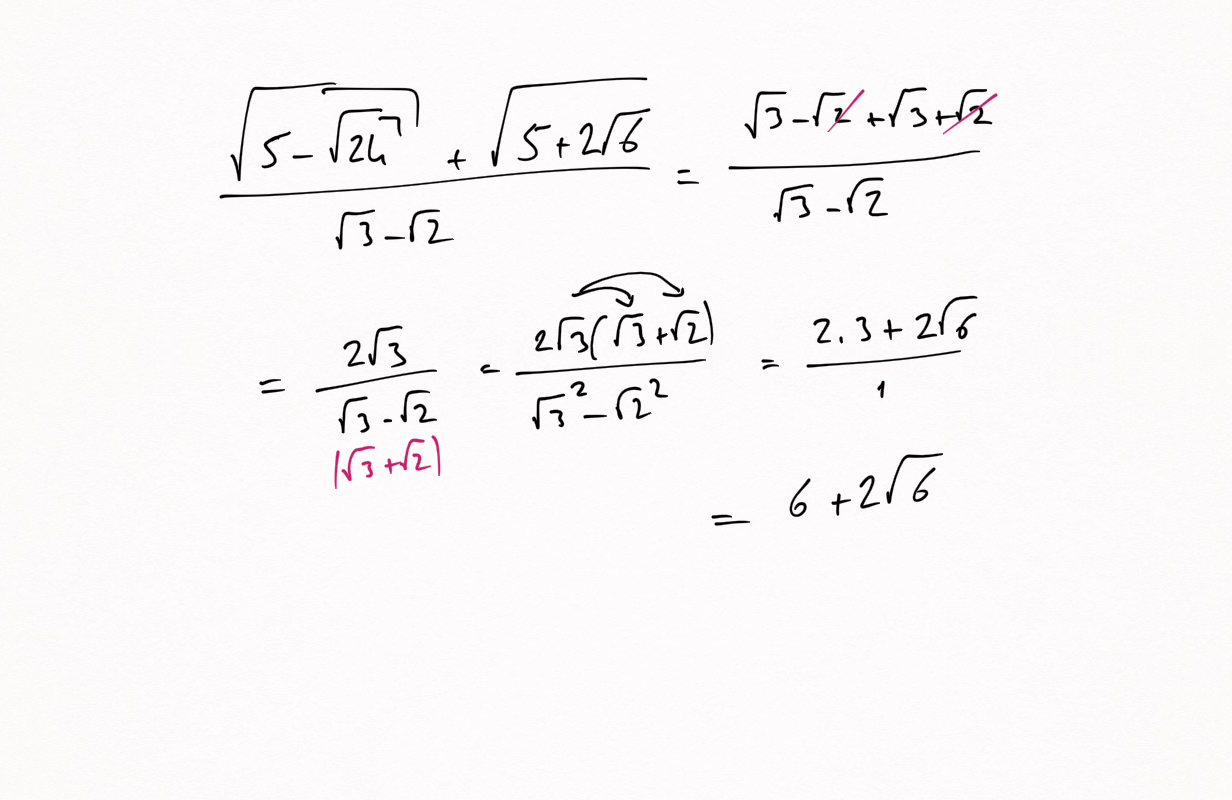 (√(5-√24) + √(5+2√6))/(√3-√2) = (√3-√2+√3+√2)/(√3-√2)
= 2√3/(√3-√2) = 2√3(√3+√2)/(√3²-√2²) = (2.3+2√6)/1
(√3+√2)
= 6+2√6